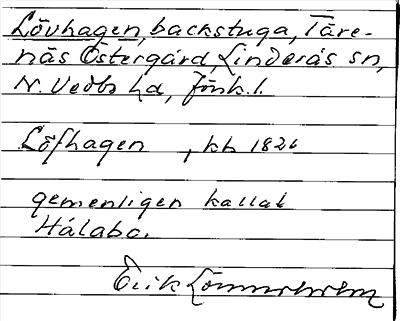 Lövhagen, backstuga, Täre-
näs Östergård Linderås sn,
N. Vedbo hd, Jönk. l.
Löfhagen , kb 1826
gemenligen kallat
Hålabo.
Erik